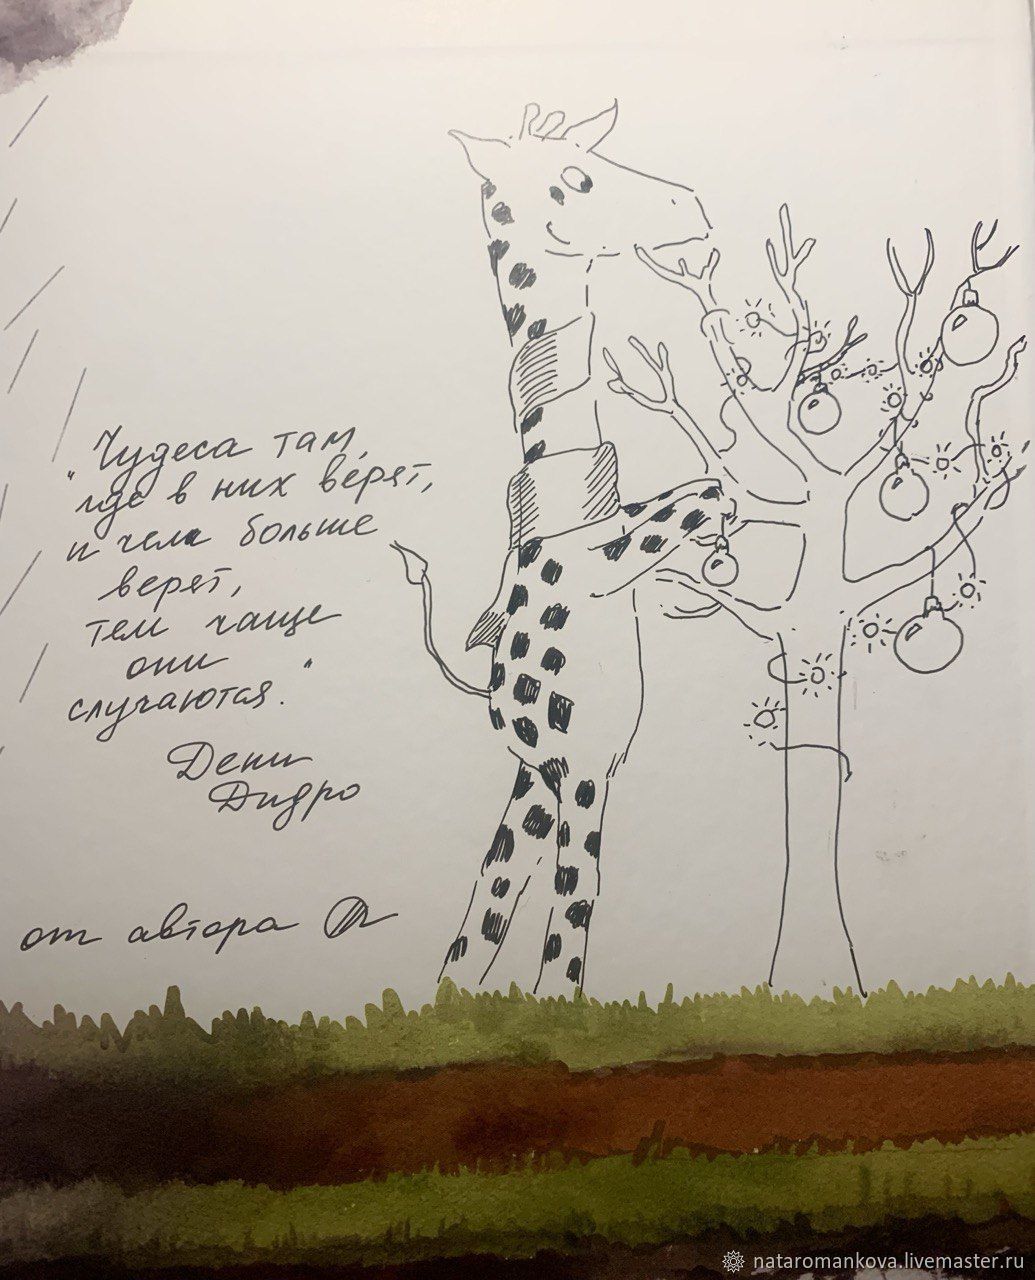 "Чудеса там,
где в них верят,
и чем больше
верят,
тем чаще
они
случаются."
Дени
Дидро
от автора
nataromankova.livemaster.ru